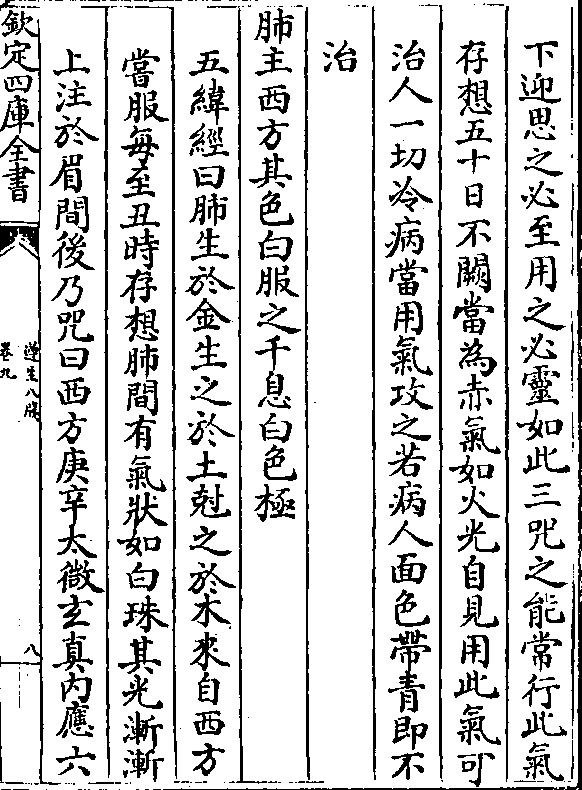 下迎思之必至用之必靈如此三咒之能常行此氣
存想五十日不闕當為赤氣如火光自見用此氣可
治人一切冷病當用氣攻之若病人面色帶青即不
治
肺主西方其色白服之千息白色極
五緯經曰肺生於金生之於土尅之於木來自西方
嘗服每至丑時存想肺間有氣狀如白珠其光漸漸
上注於眉間後乃咒曰西方庚辛太微玄真内應六
欽定四庫全書
遵生八牋
卷九
八